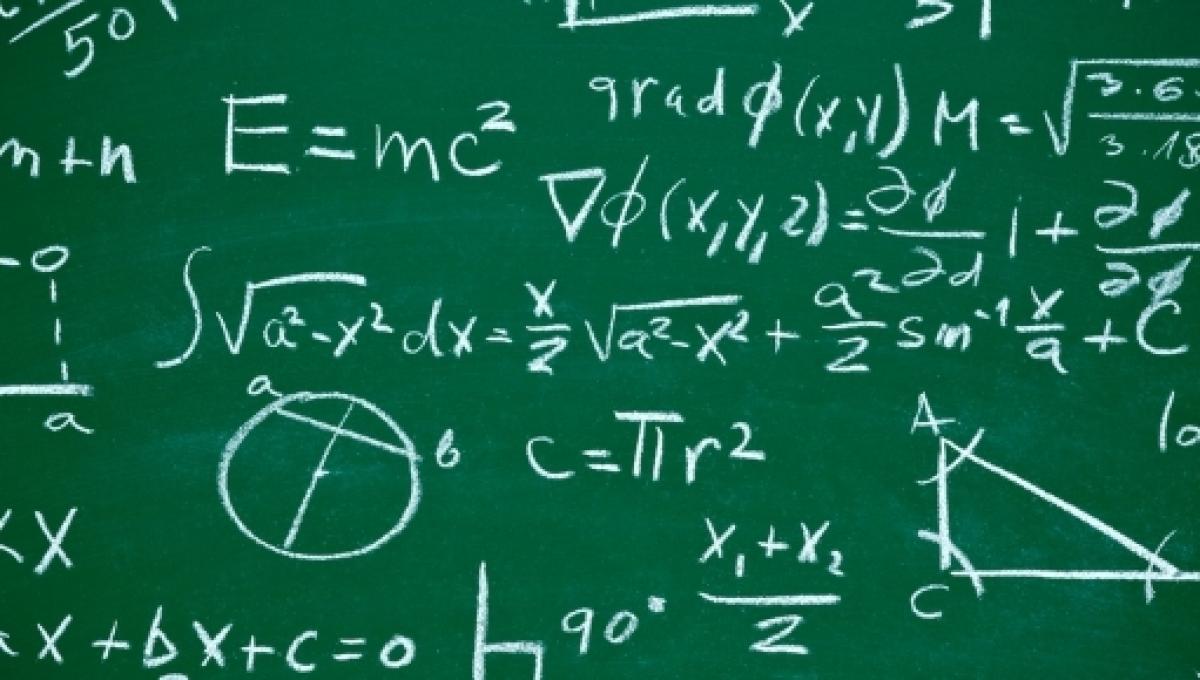 50
x
m+n
E=mc²
grad ϕ(x,y) M=√3.6/3.18
∇ϕ(x,y,z)=∂ϕ/∂d i+∂ϕ/∂ϕ
o
a
∫√a²-x² dx=x/2 √a²-x²+a²/2 sin⁻¹x/a+C
a
b
c=πr²
A
C
x
x₁+x₂/2
x+bx+c=0
90°